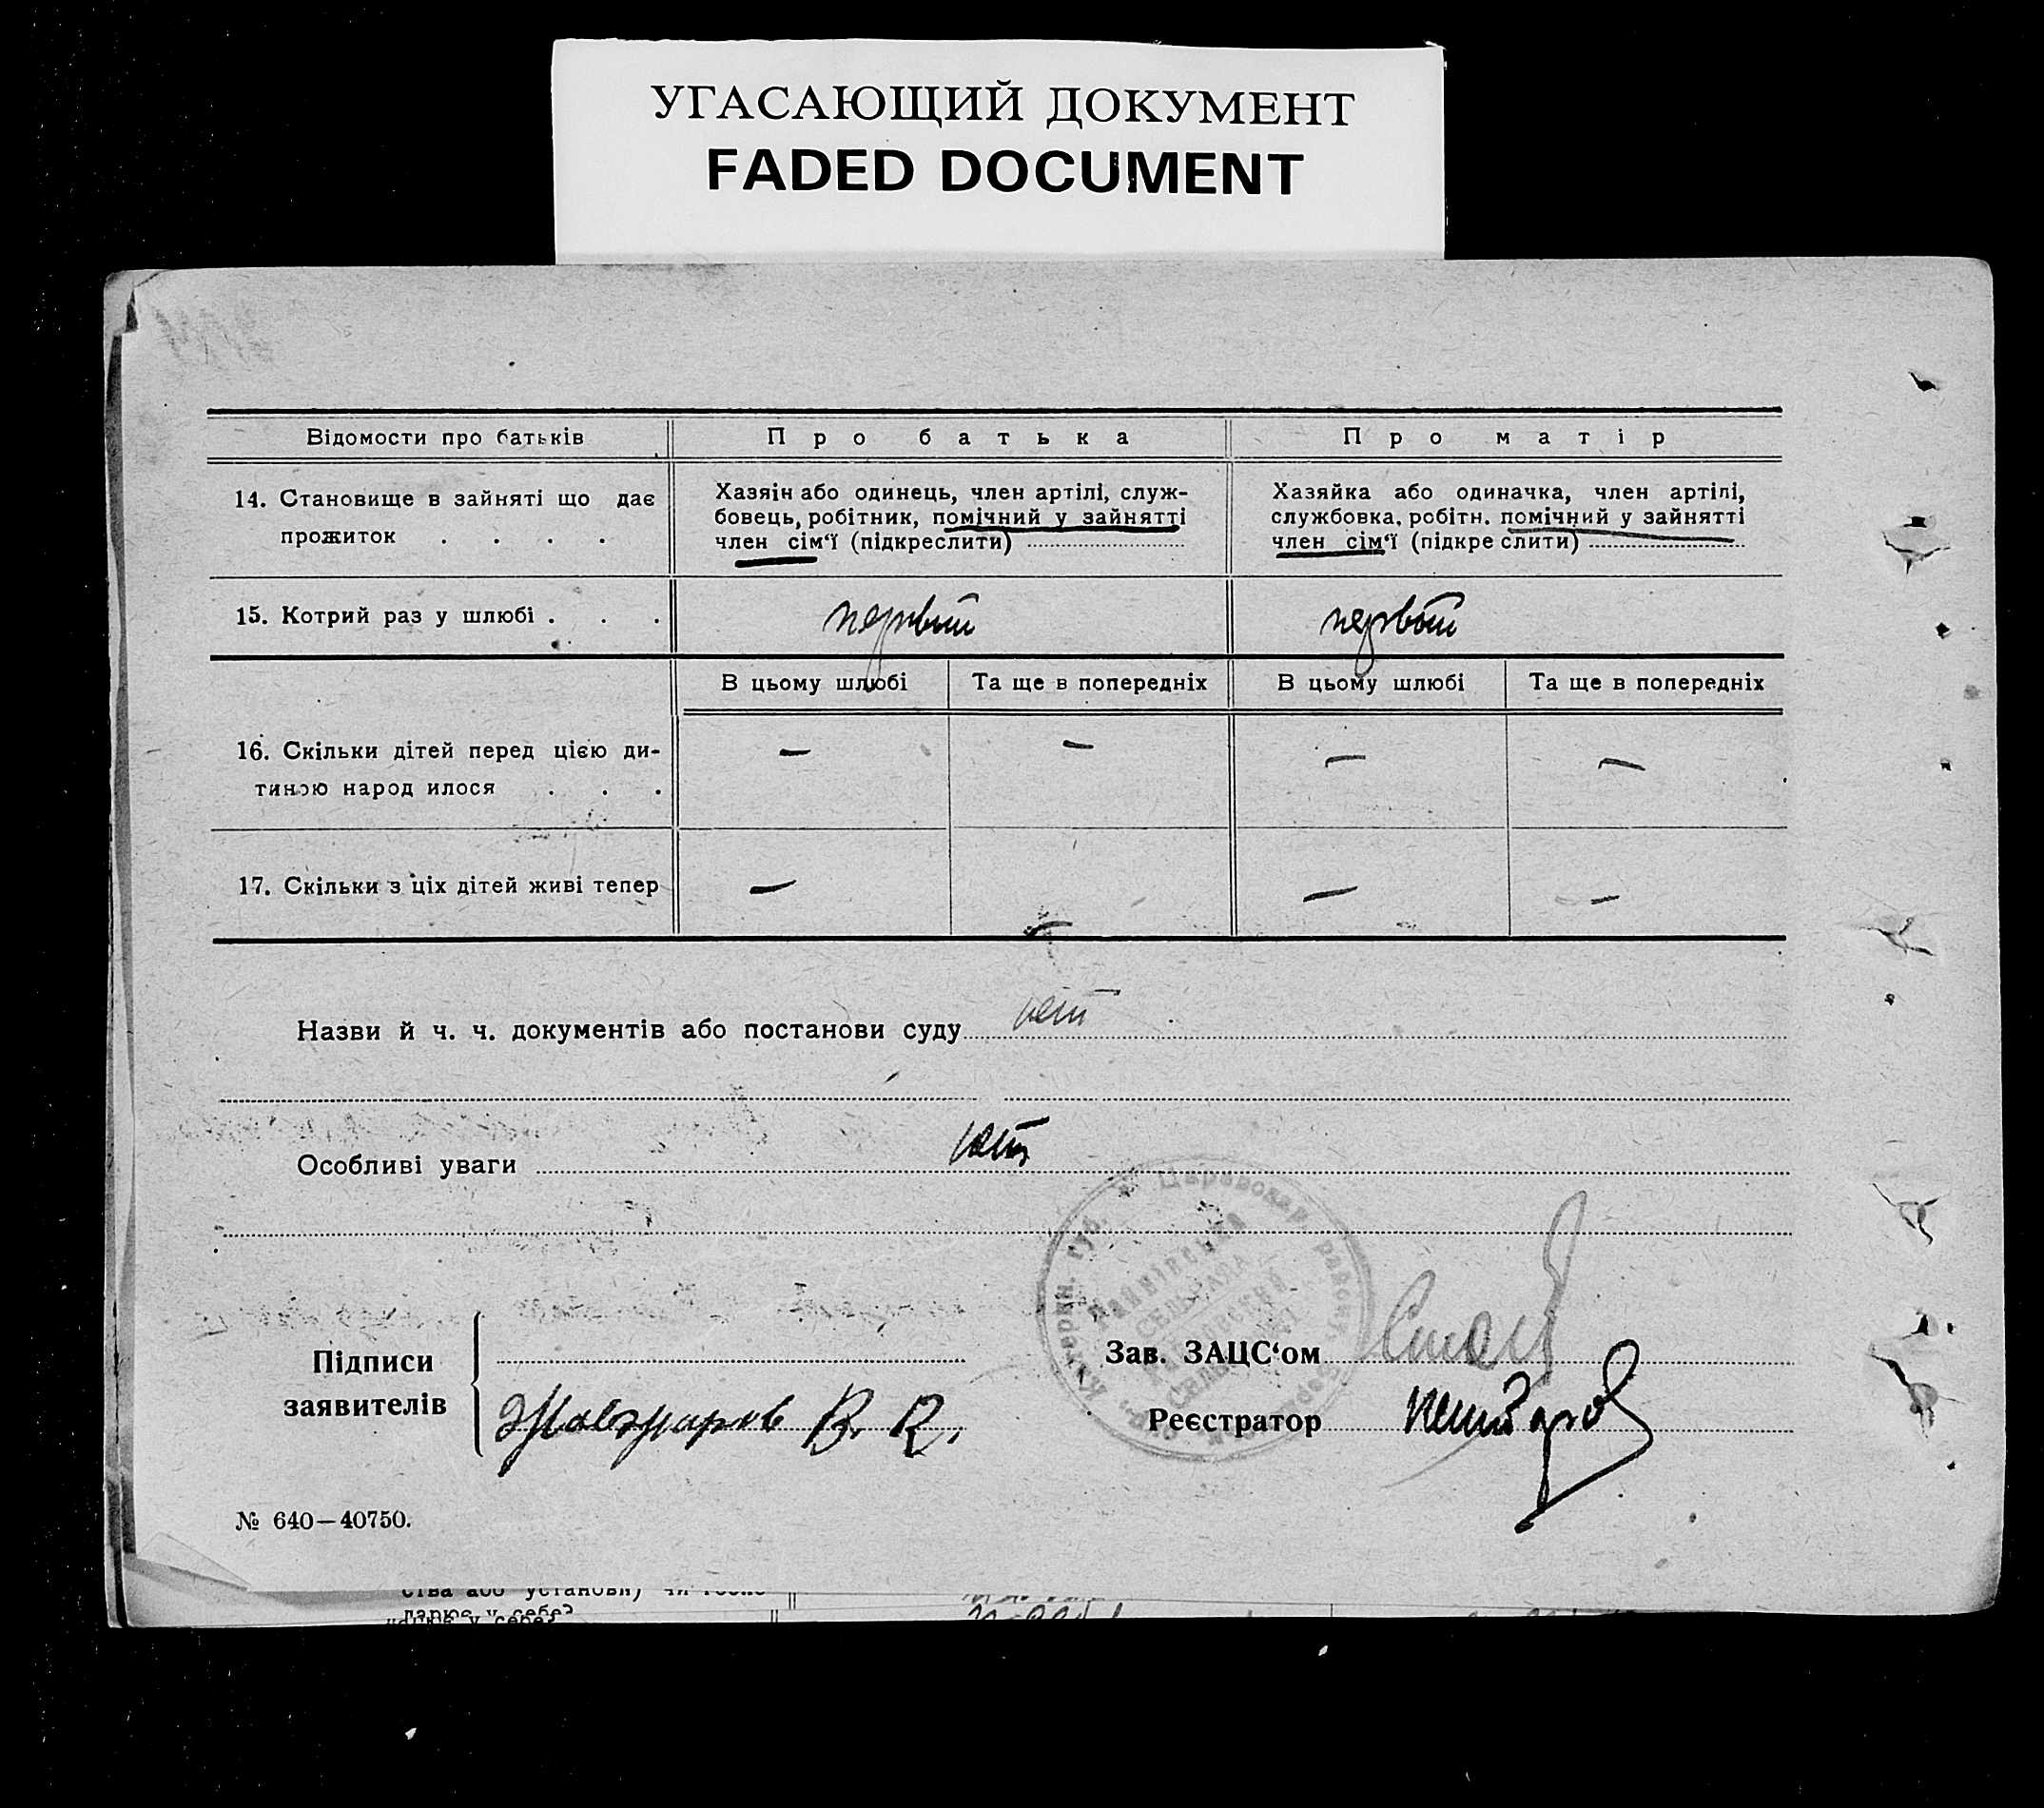 УГАСАЮЩИЙ ДОКУМЕНТ
FADED DOCUMENT
Відомости про батьків
Про батька
Про матір
14. Становище в зайняті що дає
прожиток . . . .
Хазяін або одинець, член артілі, служ-
бовець, робітник, помічний у зайнятті
член сім‘ї (підкреслити)
Хазяйка або одиначка, член артілі,
службовка, робітн. помічний у зайнятті
член сім‘ї (підкреслити)
15. Котрий раз у шлюбі . . .
первый
первый
В цьому шлюбі
Та ще в попередніх
В цьому шлюбі
Та ще в попередніх
16. Скільки дітей перед цією ди-
тиною народилося . . .
— — — —
17. Скільки з ціх дітей живі тепер
— — — —
Назви й ч. ч. документів або постанови суду нет
Особливі уваги нет
Підписи
заявителів
В. К.
Зав. ЗАЦС‘ом
Реєстратор
№ 640—40750.
ства або установи) чи
у себе?